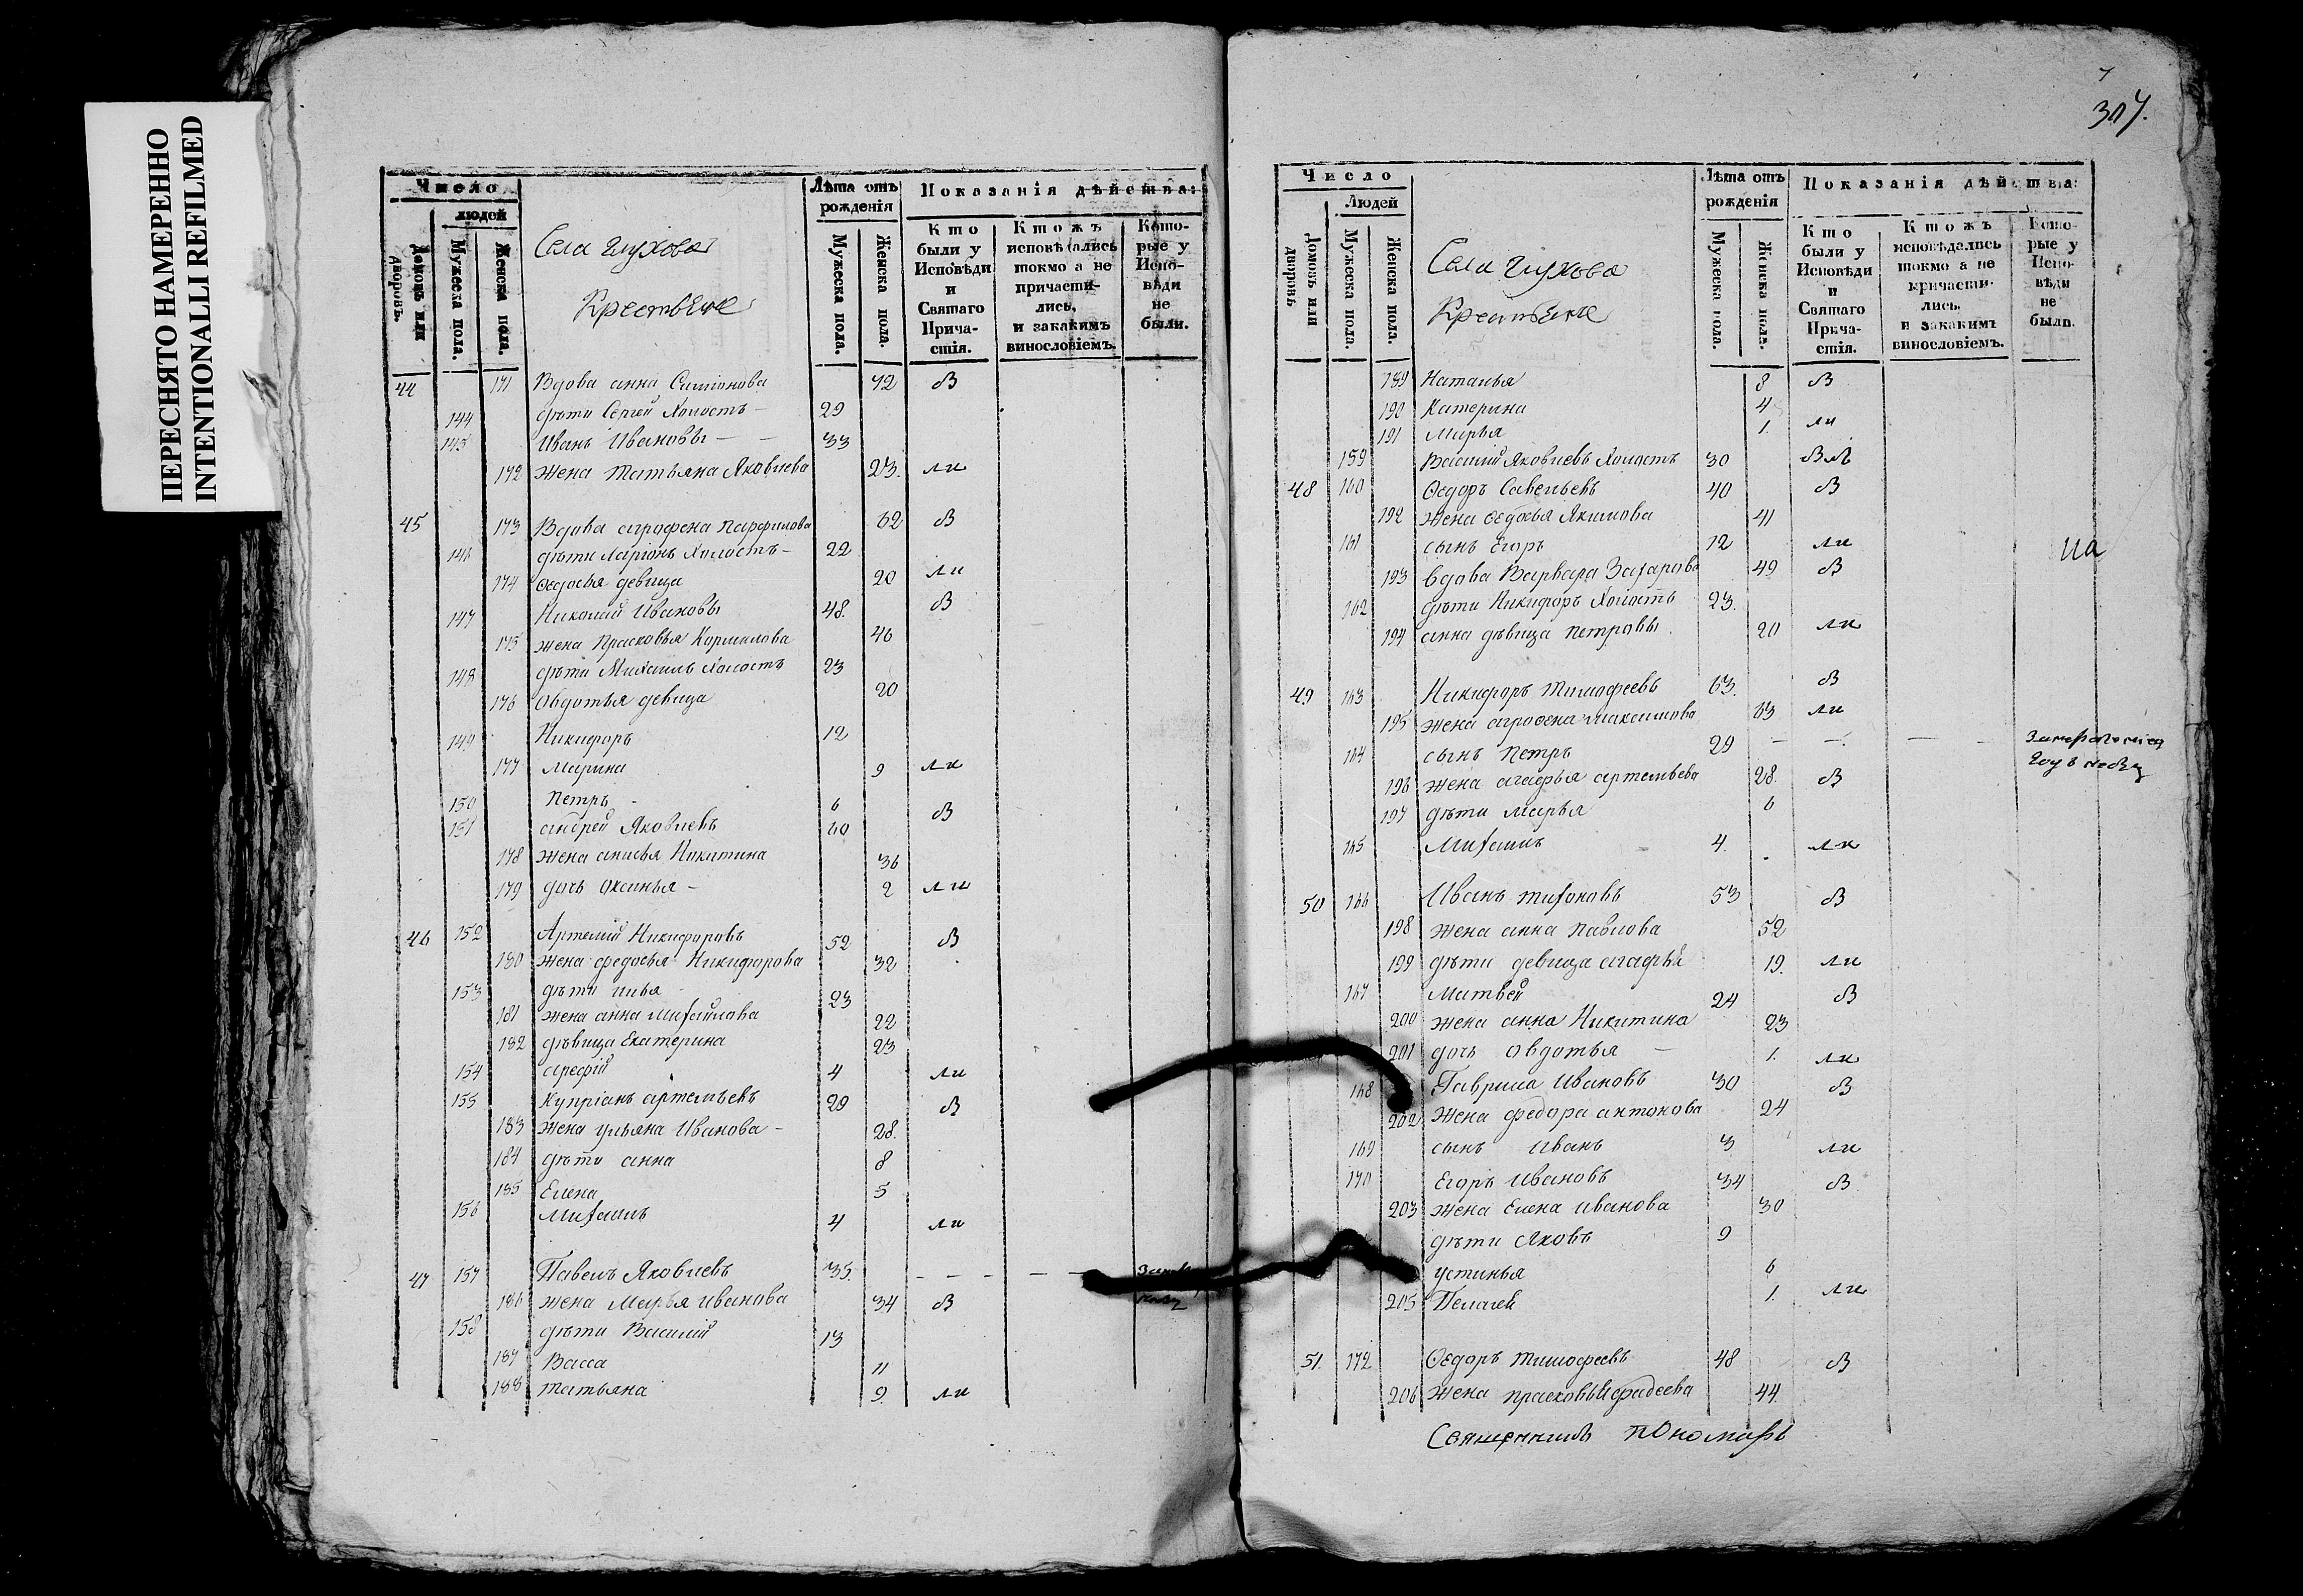 ПЕРЕСНЯТО НАМЕРЕННО
INTENTIONALLI REFILMED
Число
людей
Домовъ или дворовъ.
Мужеска пола.
Женска пола.
Села Глухова
Крестьяне
Лѣта отъ рожденія
Мужеска пола.
Женска пола.
Показанія дѣйства:
Кто были у Исповѣди и Святаго Прича-стія.
Ктожъ исповѣдались токмо а не причасти-лись, и закакимъ винословіемъ.
Кото-рые у Испо-вѣди не были.
44 171 Вдова анна Симіонова 72 В
144 дѣти Сергей Холостъ – 29
145 Иванъ Ивановы – – 33
172 жена Татьяна Яковлева 23. ли
45 173 Вдова агрофена парфилова 62 В
146 дѣти Ларіонъ Холостъ – 22
174 Ѳедосья девица 20 ли
147 Николай Ивановы 48. В
175 жена Прасковья Кормилова 46
148 дѣти Михаилъ Холостъ 23
176 Овдотья девица 20
149 Никифоръ 12
177 Марина 9 ли
150 Петръ – 6
151 андрей Яковлевъ 40 В
178 жена анисья Никитина 36
179 дочь Оксинья – 2 ли
46 152 Артемій Никифоровъ 52 В
180 жена федосья Никифорова 32
153 дѣти илья 23
181 жена анна Михайлова 22
182 дѣвица Екатерина 23
154 арефий 4 ли
155 Купріанъ артемьевъ 29 В
183 жена ульяна Иванова – 28.
184 дѣти анна 8
185 Елена 5
156 Михаилъ 4 ли
47 157 Павелъ Яковлевъ 35. – – – – –
186 жена Марья иванова 34 В
158 дѣти Василій 13
187 Васса 11
188 татьяна 9. ли
307.
Число
Людей
Домовъ или дворовъ
Мужеска пола.
Женска пола.
Села Глухова
Крестьяне
Лѣта отъ рожденія
Мужеска пола.
Женска пола.
Показанія дѣйства:
Кто были у Исповѣди и Святаго Прича-стія.
Ктожъ исповѣдались токмо а не причасти-лись, и закакимъ винословіемъ.
Кото-рые у Испо-вѣди не были.
189 Наталья 8 В
190 Катерина 4
191 Марья 1. ли
159 Василий Яковлевъ Холостъ 30
48 160 Ѳедоръ Савельевъ 40 В
192 жена Ѳедосья Якимова 41
161 сынъ Егоръ 12 ли
193 вдова Варвара Захарова 49 В
162 дѣти Никифоръ Холостъ 23.
194 анна дѣвица петровы 20 ли
49 163 Никифоръ тимофеевъ 63. В
195 жена агрофена максимова 63 ли
164 сынъ Петръ 29 – – – –
196 жена агафья артемьева 28. В
197 дѣти марья 6
165 Михаилъ 4. ли
50 166 Иванъ тихоновъ 53 В
198 жена анна павлова 52
199 дѣти девица агафья 19. ли
167 Матвей 24 В
200 жена анна Никитина 23
201 дочь Овдотья – 1. ли
168 Гаврила Ивановъ 30 В
202 жена федора антонова 24
169 сынъ Иванъ 3 ли
170 Егоръ Ивановъ 34 В
203 жена Елена иванова 30
дѣти Яковъ 9
устинья 6
205 Пелагея 1. ли
51. 172 Ѳедоръ тимофеевъ 48 В
206 жена прасковья фадеева 44.
Священникъ пономарь